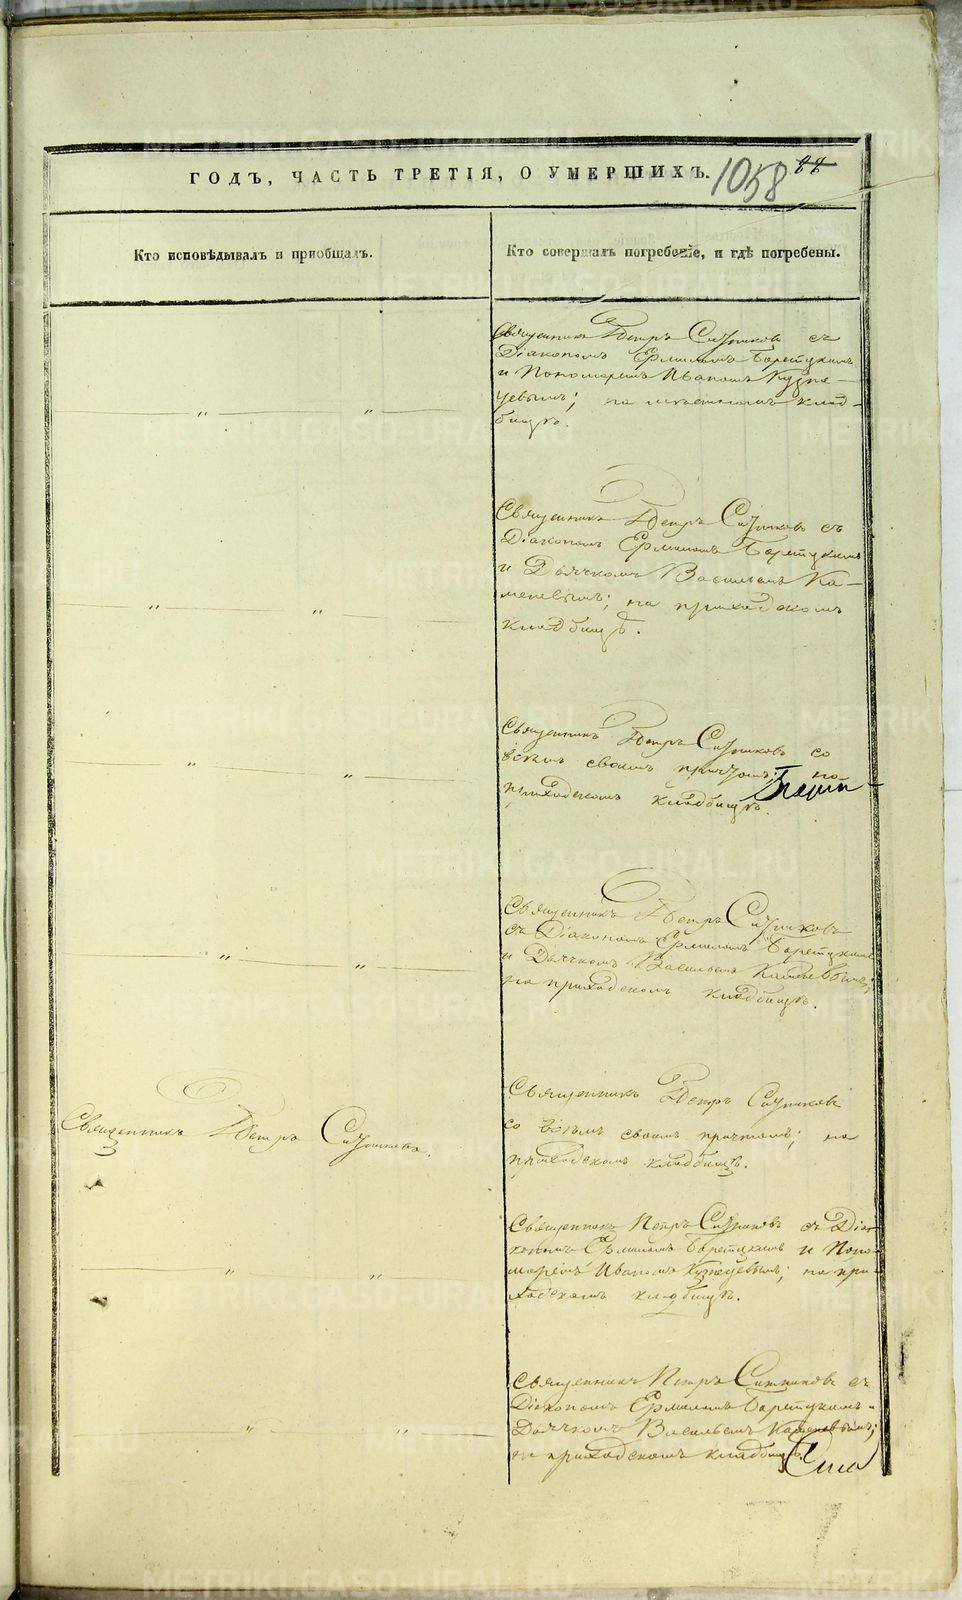 ГОДЪ, ЧАСТЬ ТРЕТІЯ, О УМЕРШИХЪ.
1058
Кто исповѣдывалъ и приобщалъ.
Кто совершалъ погребеніе, и гдѣ погребены.
Священникъ Петръ Ситниковъ съ
Діакономъ Ермиломъ
и Пономаремъ Иваномъ Кузне-
цевымъ; на мѣстномъ клад-
бищѣ.
Священникъ Петръ Ситниковъ съ
Діакономъ Ермиломъ
и Дьячкомъ Васильемъ Ка-
меневымъ; на приходскомъ
кладбищѣ.
Священникъ Петръ Ситниковъ со
всѣмъ своимъ причтомъ; на
приходскомъ кладбищѣ.
Священникъ Петръ Ситниковъ
съ Діакономъ Ермиломъ
и Дьячкомъ Васильемъ Каменевымъ;
на приходскомъ кладбищѣ.
Священникъ Петръ Ситниковъ.
Священникъ Петръ Ситниковъ
со всѣмъ своимъ причтомъ; на
приходскомъ кладбищѣ.
Священникъ Петръ Ситниковъ съ Діа-
кономъ Ермиломъ и Поно-
маремъ Иваномъ Кузнецевымъ; на при-
ходскомъ кладбищѣ.
Священникъ Петръ Ситниковъ съ
Діакономъ Ермиломъ
Дьячкомъ Васильемъ Каменевымъ;
на приходскомъ кладбищѣ.
METRIKI.GASO-URAL.RU